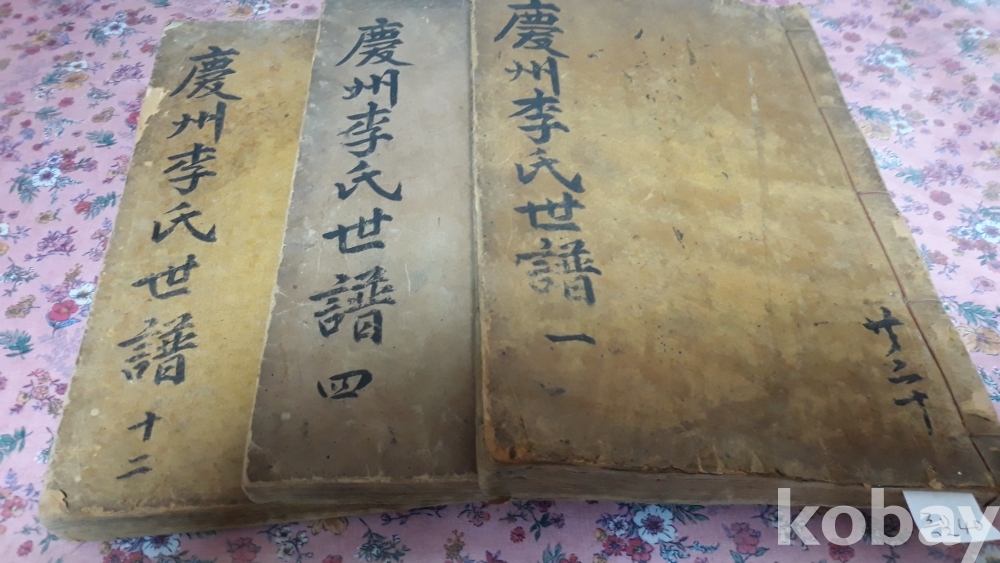 共二十
慶州李氏世譜 一
慶州李氏世譜 四
慶州李氏世譜 十二
kobay